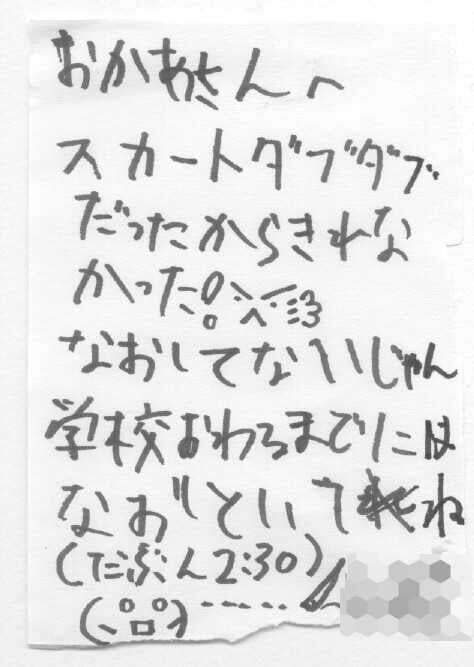 おかあさんへ
スカートダブダブ
だったからきれな
かった!
なおしてないじゃん
学校おわるまでには
なおしといてね
(たぶん2:30)